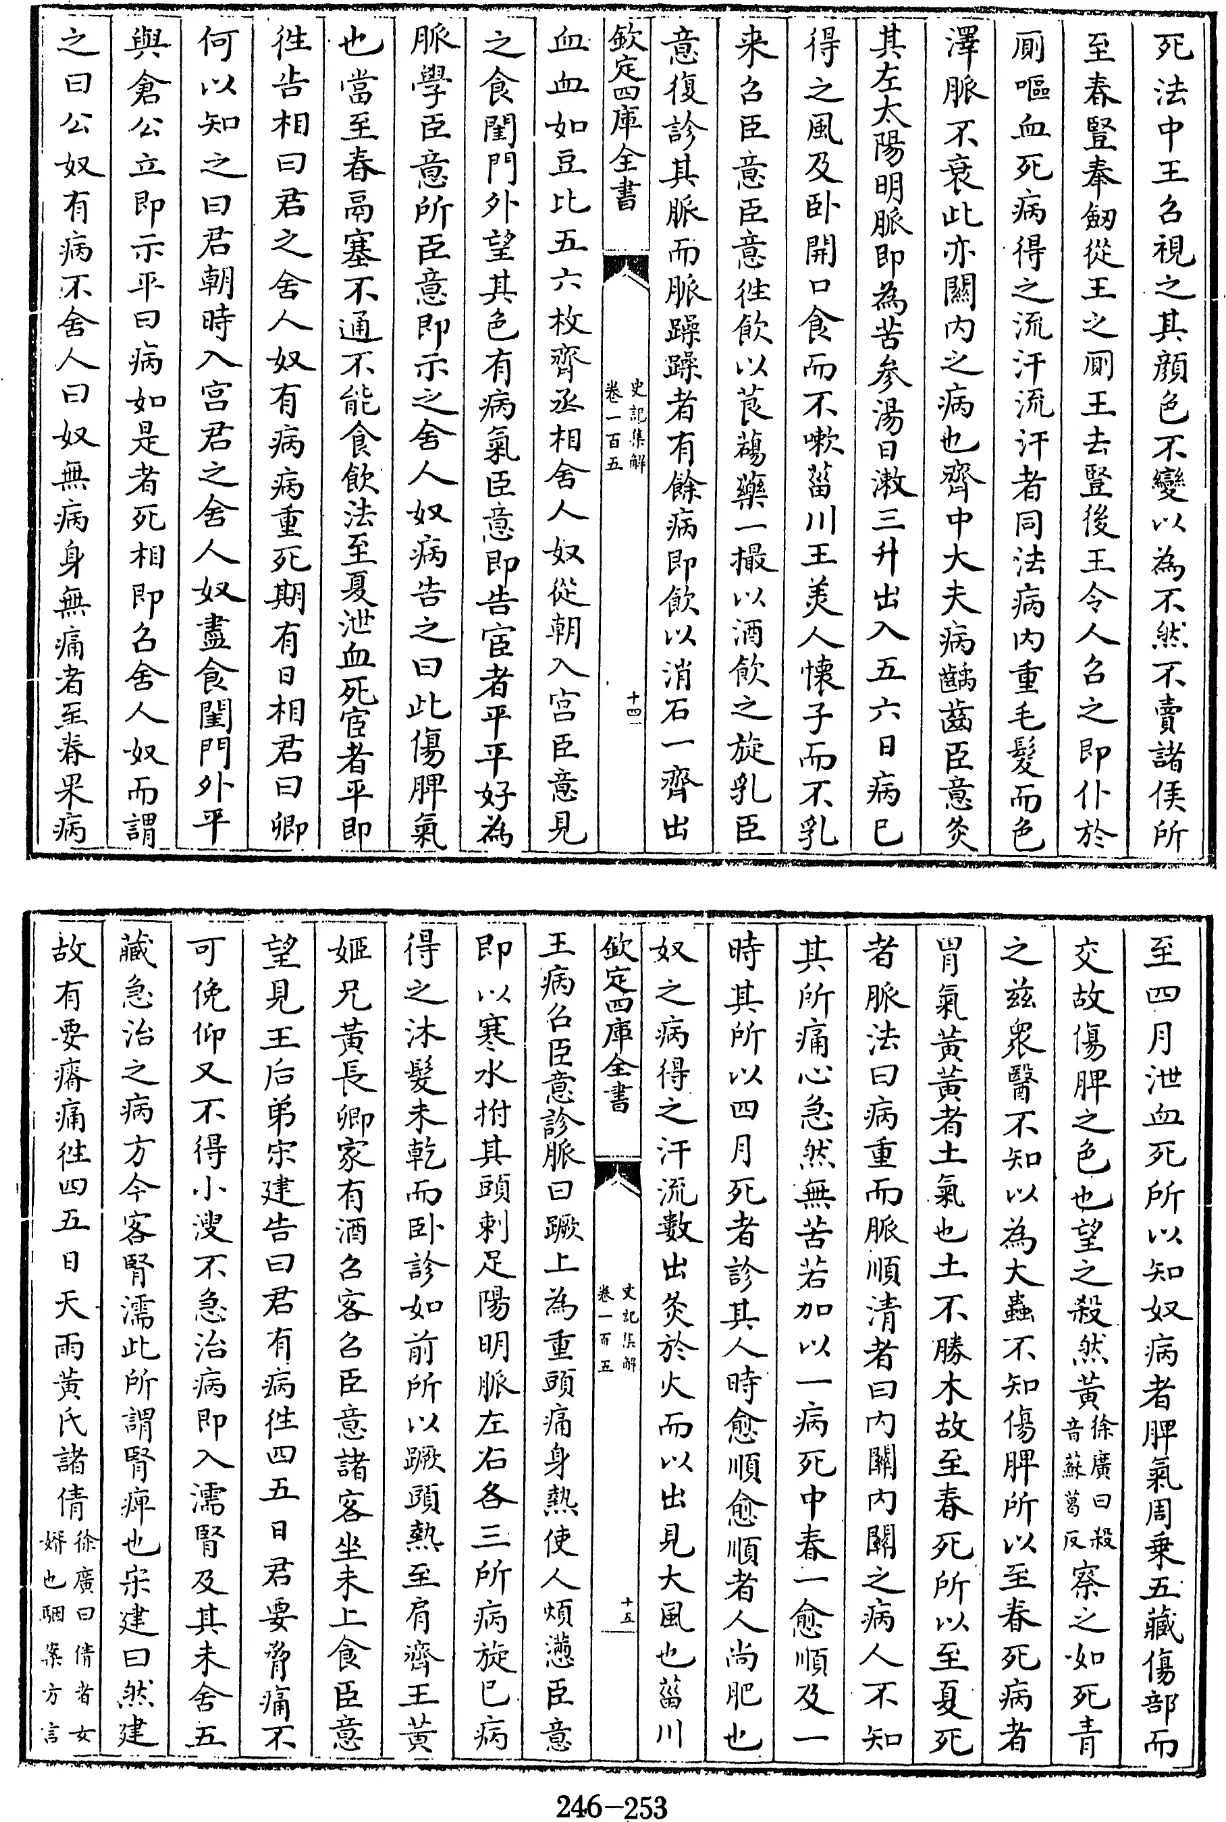 死法中王召視之其顔色不變以為不然不賣諸侯所
至春豎奉劒從王之厠王去豎後王令人召之即仆於
厠嘔血死病得之流汗流汗者同法病内重毛髮而色
澤脈不衰此亦關内之病也齊中大夫病齲齒臣意灸
其左太陽明脈即為苦參湯日漱三升出入五六日病已
得之風及卧開口食而不嗽菑川王美人懐子而不乳
来召臣意臣意徃飲以莨䓪藥一撮以酒飲之旋乳臣
意復診其脈而脈躁躁者有餘病即飲以消石一齊出
欽定四庫全書
史記集解
卷一百五
十四
血血如豆比五六枚齊丞相舍人奴從朝入宫臣意見
之食閨門外望其色有病氣臣意即告宦者平平好為
脈學臣意所臣意即示之舍人奴病告之曰此傷脾氣
也當至春鬲塞不通不能食飲法至夏泄血死宦者平即
徃告相曰君之舍人奴有病病重死期有日相君曰卿
何以知之曰君朝時入宫君之舍人奴盡食閨門外平
與倉公立即示平曰病如是者死相即召舍人奴而謂
之曰公奴有病不舍人曰奴無病身無痛者至春果病
至四月泄血死所以知奴病者脾氣周乗五藏傷部而
交故傷脾之色也望之殺然黄徐廣曰殺音蘇葛反察之如死青
之兹衆醫不知以為大蟲不知傷脾所以至春死病者
胃氣黄黄者土氣也土不勝木故至春死所以至夏死
者脈法曰病重而脈順清者曰内關内關之病人不知
其所痛心急然無苦若加以一病死中春一愈順及一
時其所以四月死者診其人時愈順愈順者人尚肥也
奴之病得之汗流數出灸於火而以出見大風也菑川
欽定四庫全書
史記集解
卷一百五
十五
王病召臣意診脈曰蹶上為重頭痛身熱使人煩懣臣意
即以寒水拊其頭刺足陽明脈左右各三所病旋已病
得之沐髮未乾而卧診如前所以蹶頭熱至肩齊王黄
姬兄黄長卿家有酒召客召臣意諸客坐未上食臣意
望見王后弟宋建告曰君有病徃四五日君要脅痛不
可俛仰又不得小溲不急治病即入濡腎及其未舍五
藏急治之病方今客腎濡此所謂腎痺也宋建曰然建
故有要瘠痛徃四五日天雨黄氏諸倩徐廣曰倩者女壻也駰案方言
246-253